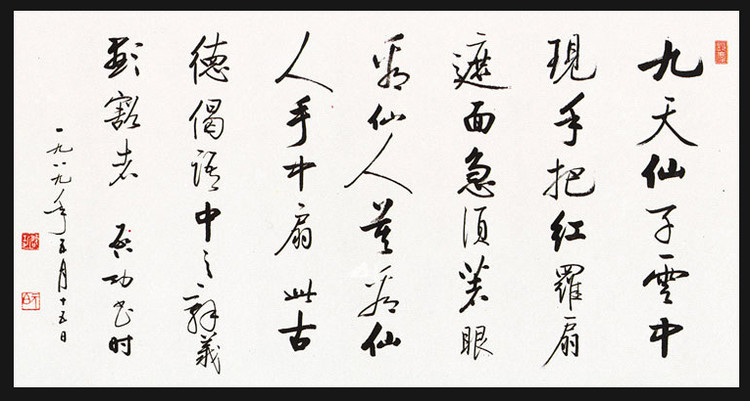 九天仙子雲中
現手把紅羅扇
遮面急須著眼
看仙人莫看仙
人手中扇 此古
德偈語中之辭義
彰豁者 啟功書时
一九八九年五月十五日